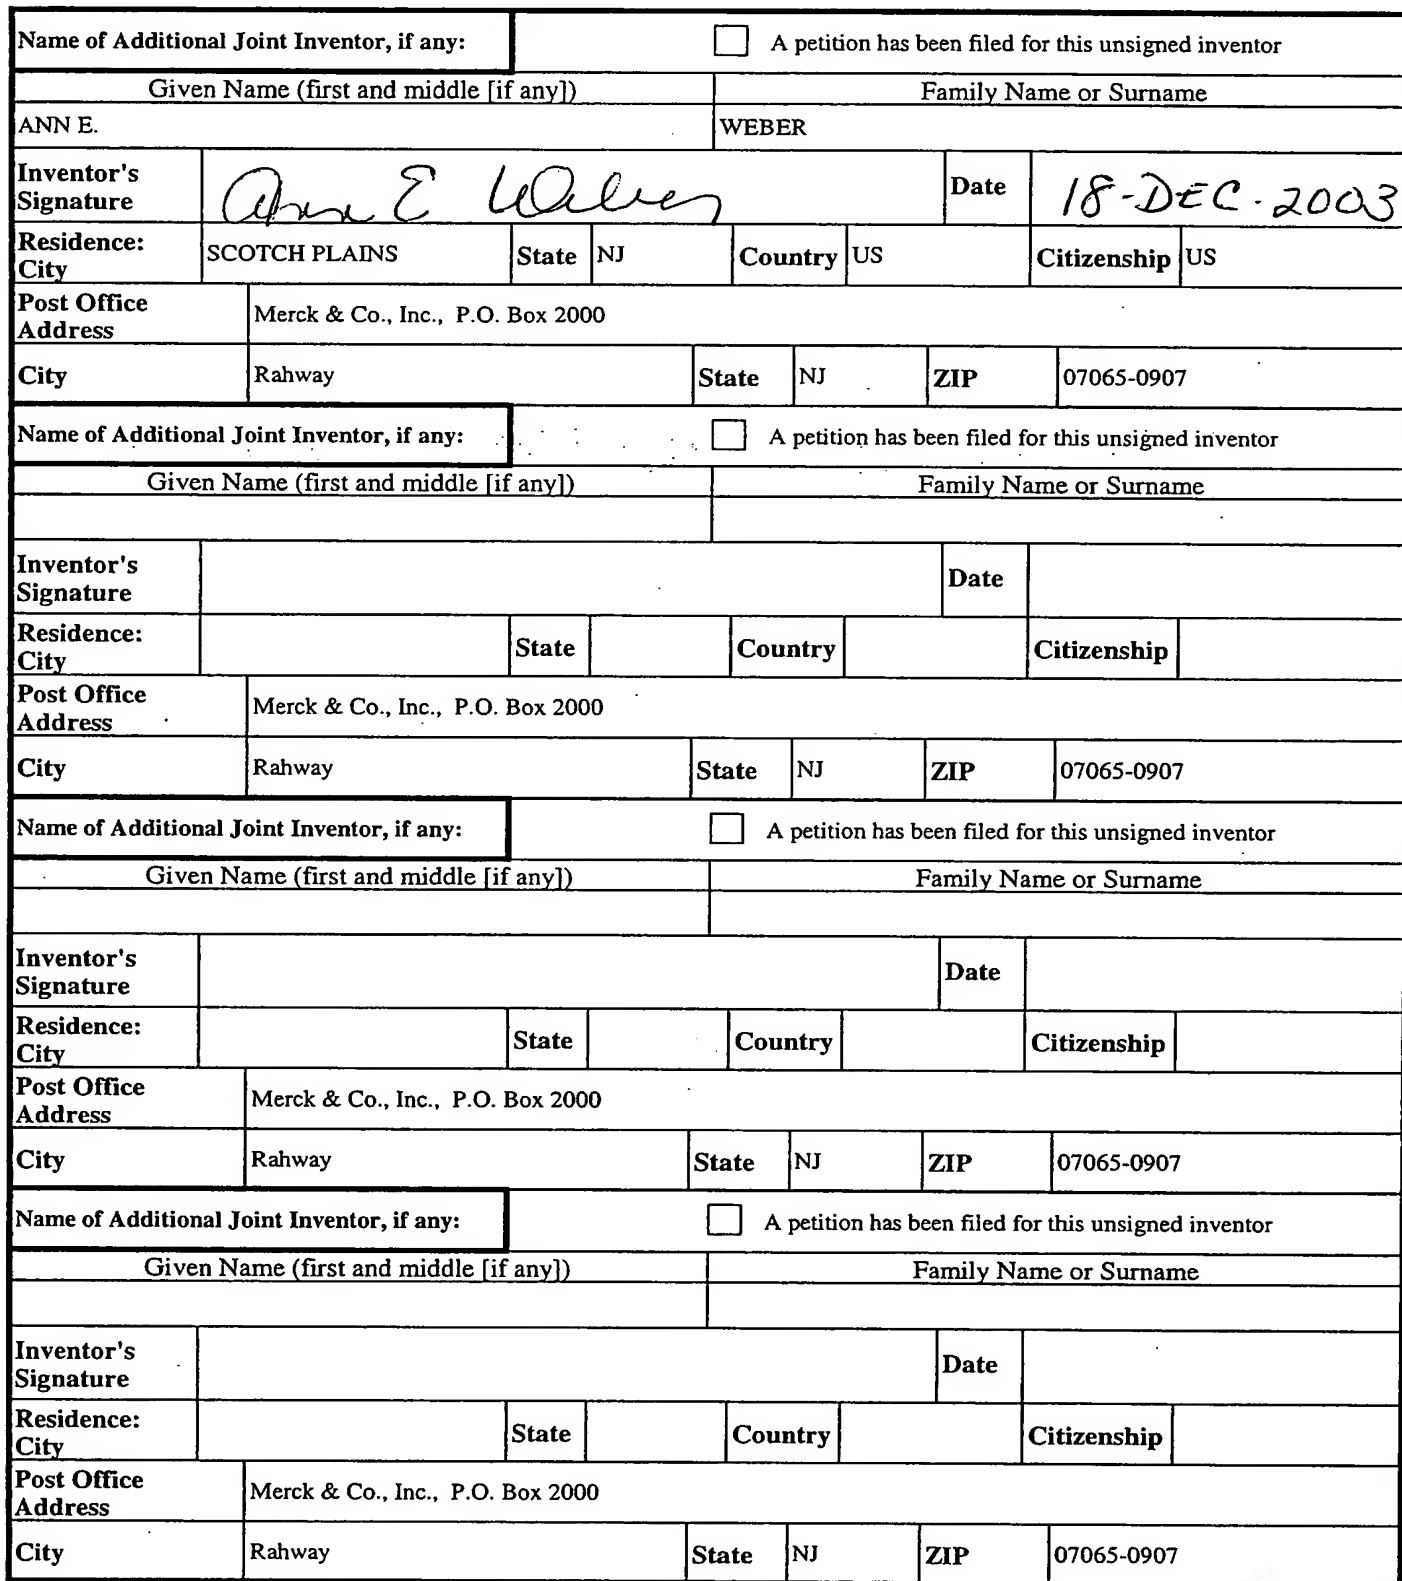 Name of Additional Joint Inventor, if any: A petition has been filed for this unsigned inventor
Given Name (first and middle [if any]) Family Name or Surname
ANN E. WEBER
Inventor's Signature Ann E Weber Date 18-DEC.2003
Residence: City SCOTCH PLAINS State NJ Country US Citizenship US
Post Office Address Merck & Co., Inc., P.O. Box 2000
City Rahway State NJ ZIP 07065-0907
Name of Additional Joint Inventor, if any: A petition has been filed for this unsigned inventor
Given Name (first and middle [if any]) Family Name or Surname
Inventor's Signature Date
Residence: City State Country Citizenship
Post Office Address Merck & Co., Inc., P.O. Box 2000
City Rahway State NJ ZIP 07065-0907
Name of Additional Joint Inventor, if any: A petition has been filed for this unsigned inventor
Given Name (first and middle [if any]) Family Name or Surname
Inventor's Signature Date
Residence: City State Country Citizenship
Post Office Address Merck & Co., Inc., P.O. Box 2000
City Rahway State NJ ZIP 07065-0907
Name of Additional Joint Inventor, if any: A petition has been filed for this unsigned inventor
Given Name (first and middle [if any]) Family Name or Surname
Inventor's Signature Date
Residence: City State Country Citizenship
Post Office Address Merck & Co., Inc., P.O. Box 2000
City Rahway State NJ ZIP 07065-0907